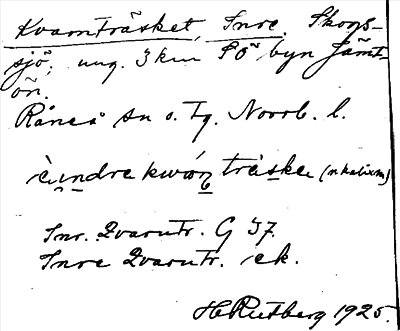 Kvarnträsket, Inre. Skogs-
sjö, ung. 3 km SÖ byn Jämt-
ön.
Råneå sn o. tg. Norrb. l.
ìndre kwárn träske (n kalixm)
Inr. Qvarntr. G 37.
Inre Qvarntr. ek.
H Rutberg 1925.